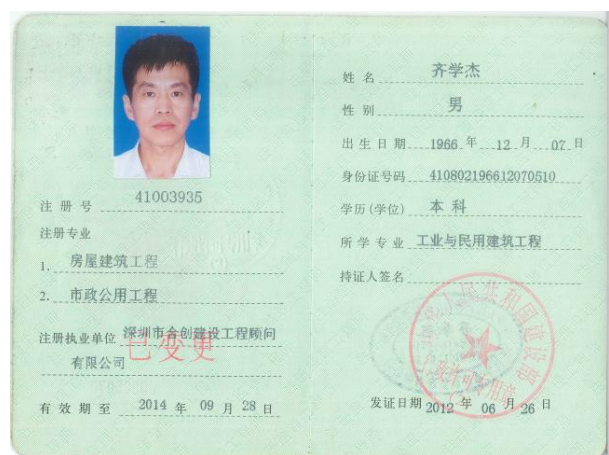 注 册 号 41003935
注册专业
1. 房屋建筑工程
2. 市政公用工程
注册执业单位 深圳市合创建设工程顾问
有限公司
已变更
有 效 期 至 2014 年 09 月 28 日
姓 名 齐学杰
性 别 男
出 生 日 期 1966 年 12 月 07 日
身份证号码 410802196612070510
学历(学位) 本 科
所 学 专 业 工业与民用建筑工程
持证人签名
发证日期 2012 年 06 月 26 日